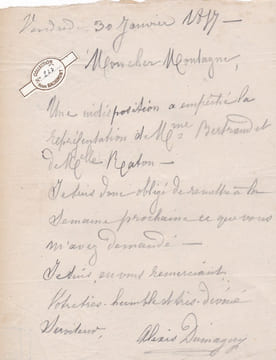 Vendredi 30 Janvier 18
COLLECTION
Mon cher Montagne,
Une indisposition a empêché la
représentation de Mme Bertrand et
de Melle Raton —
Je suis donc obligé de remettre à la
semaine prochaine ce que vous
m'avez demandé —
Je suis, en vous remerciant,
Votre très-humble et très-dévoué
Serviteur,
Alexis